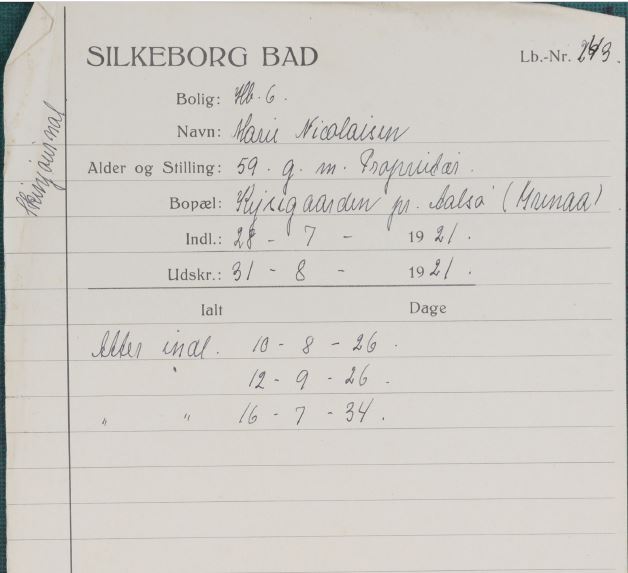 SILKEBORG BAD
Lb.-Nr.
Bolig: Hb. 6.
Navn: Marie Nicolaisen
Alder og Stilling: 59. g. m. Proprietær.
Bopæl: pr. Aalsø (Grenaa)
Indl.: 28 - 7 - 1921.
Udskr.: 31 - 8 - 1921.
Ialt Dage
Atter indl. 10 - 8 - 26.
" 12 - 9 - 26.
" " 16 - 7 - 34.